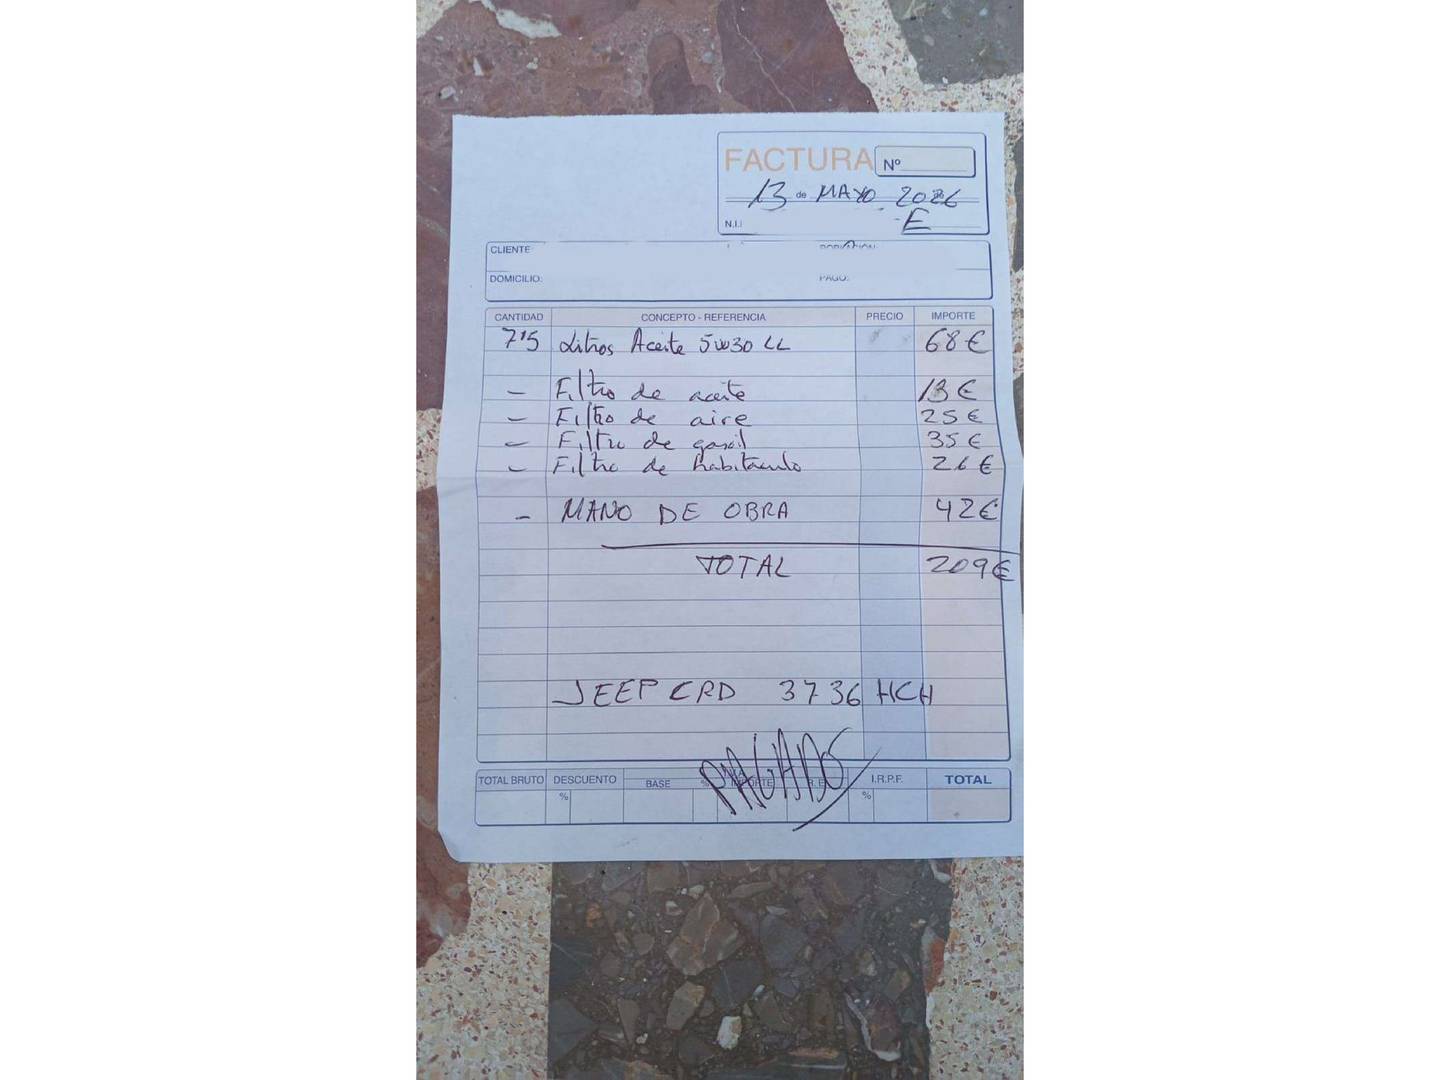 FACTURA Nº
13 de MAYO 2026
N.I.
E
CLIENTE
DOMICILIO:
PAGO:
CANTIDAD CONCEPTO - REFERENCIA PRECIO IMPORTE
7'5 Litros Aceite 5w30 LL 68€
- Filtro de aceite 13€
- Filtro de aire 25€
- Filtro de gasoil 35€
- Filtro de habitaculo 26€
- MANO DE OBRA 42€
TOTAL 209€
JEEP CRD 3736 HCH
PAGADO
TOTAL BRUTO DESCUENTO BASE % IMPORTE R.E. I.R.P.F. TOTAL
% %